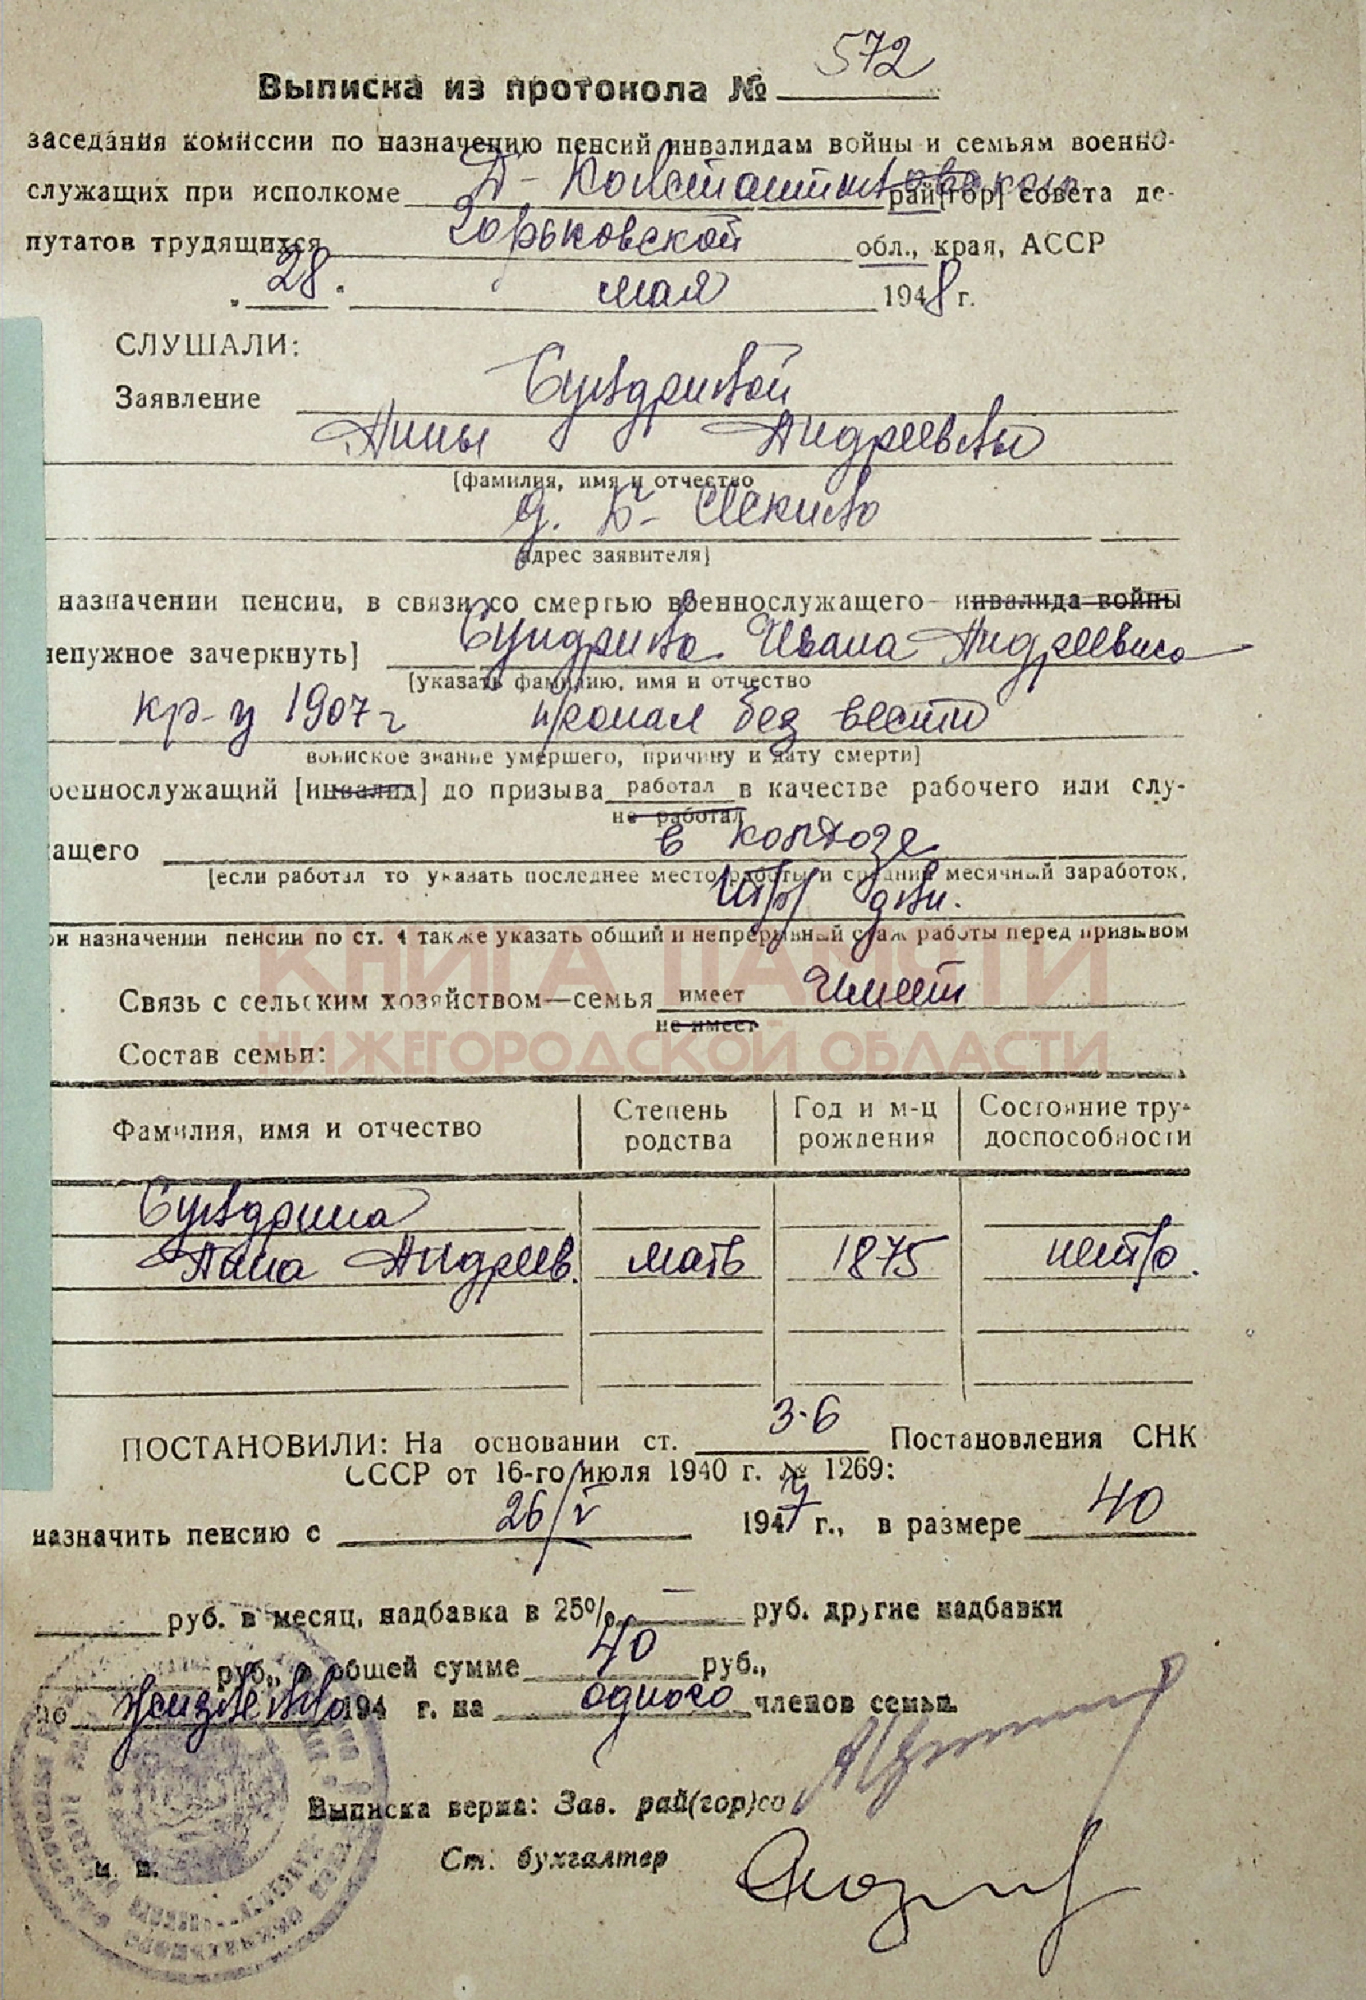 Выписка из протокола № 572
заседания комиссии по назначению пенсий инвалидам войны и семьям военно-
служащих при исполкоме Д-Константиновском рай[гор] совета де-
путатов трудящихся Горьковской обл., края, АССР
„ 28 " мая 1948 г.
СЛУШАЛИ:
Заявление Сундриной
Анны Андреевны
[фамилия, имя и отчество
д. Б-Сескино
адрес заявителя]
назначении пенсии, в связи со смертью военнослужащего - инвалида войны
непужное зачеркнуть] Сундрина Ивана Андреевича
[указать фамилию, имя и отчество
кр-ц 1907 г пропал без вести
воинское звание умершего, причину и дату смерти]
оеннослужащий [инвалид] до призыва работал в качестве рабочего или слу-
не работал
ащего в колхозе
[если работал то указать последнее место работы и средний месячный заработок,
дни.
ри назначении пенсии по ст. 4 также указать общий и непрерывный стаж работы перед призывом
КНИГА ПАМЯТИ
Связь с сельским хозяйством—семья имеет Имеет
не имеет
НИЖЕГОРОДСКОЙ ОБЛАСТИ
Состав семьи:
Фамилия, имя и отчество Степень родства Год и м-ц рождения Состояние тру-доспособности
Сундрина
Анна Андреев. мать 1875 нетр.
ПОСТАНОВИЛИ: На основании ст. 3-6 Постановления СНК
СССР от 16-го июля 1940 г. № 1269:
назначить пенсию с 26/V 1947 г., в размере 40
руб. в месяц, надбавка в 25% — руб. другие надбавки
руб., в общей сумме 40 руб.,
по пожизненно 194 г. на одного членов семьи.
Выписка верна: Зав. рай(гор)со
Ст. бухгалтер
м. п.